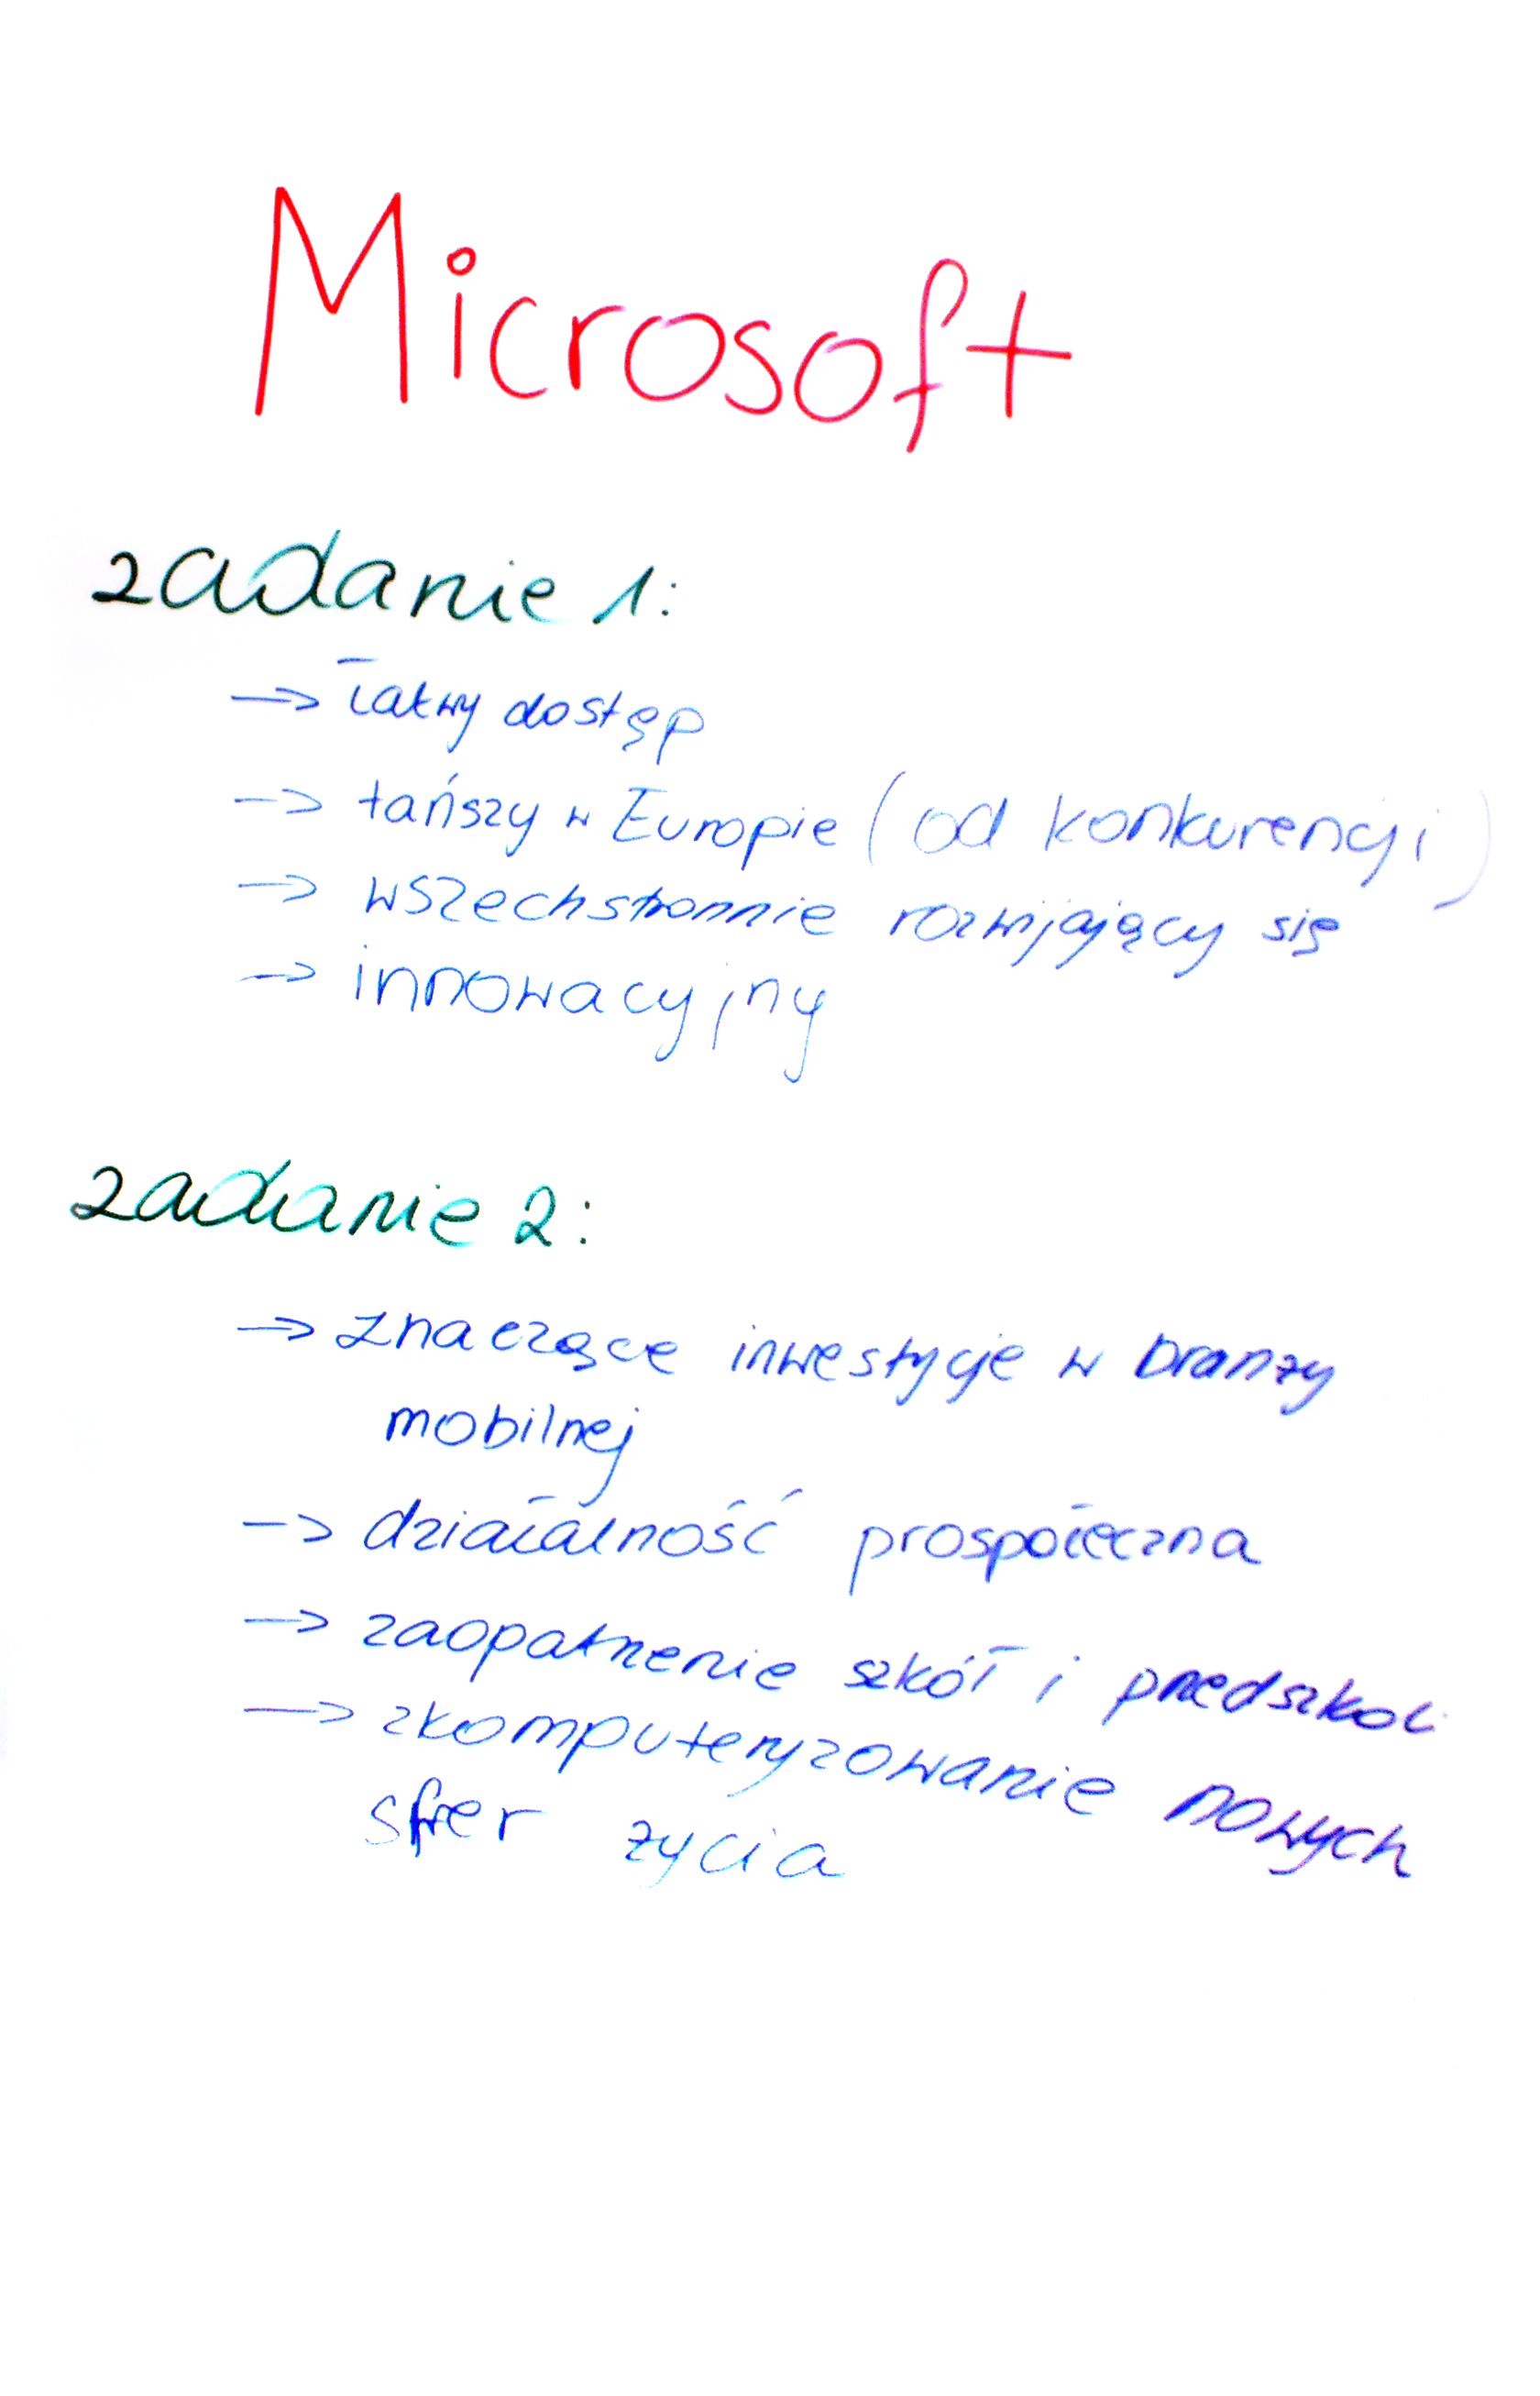 Microsoft
zadanie 1:
→ łatwy dostęp
→ tańszy w Europie (od konkurencji)
→ wszechstronnie rozwijający się
→ innowacyjny
zadanie 2:
→ znaczące inwestycje w branży
mobilnej
→ działalność prospołeczna
→ zaopatrzenie szkół i przedszkoli
→ zkomputeryzowanie nowych
sfer życia